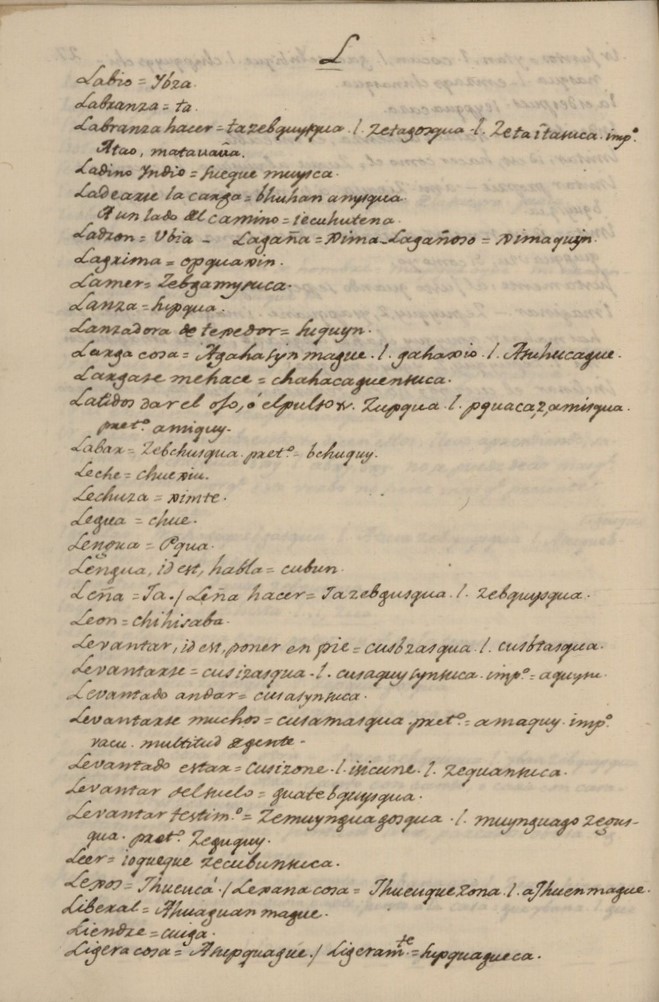 L
Labio = Ybza.
Labranza = ta.
Labranza hacer = tazebquysqua .l. Zetagosqua .l. Zetaîtasuca. impº.
Atao, matauaüa.
Ladino Yndio = sueque muysca.
Ladearse la carga = bhuhan anysqua.
A un lado del camino = iecuhutena.
Ladron = Ubia — Lagaña = Xima — Lagañoso = ximaquyn.
Lagrima = opquaxin.
Lamer = Zebgamysuca.
Lanza = supqua.
Lanzadora de texedor = suquyn.
Larga cosa = Agahasynmague .l. gahaxio .l. Asuhucague.
Largase me hace = chahacaguensuca.
Latidos dar el oso, ó el pulso Zupqua .l. pquacaz, amisqua.
pretº. amiquy.
Labar = Zebchusqua. pretº. = bchuquy.
Leche = chuexiu.
Lechuza = ximte.
Legua = chue.
Lengua = Pqua.
Lengua, id est, habla = cubun.
Leña = Ta. / Leña hacer = Tazebgusqua .l. zebquysqua.
Leon = chihisaba.
Levantar, id est, poner en pie = cusbzasqua .l. cusbtasqua.
Levantarse = cusizasqua .l. cusaquysynsuca. impº. = aquysu.
Levantado andar = cusasynsuca.
Levantarse muchos = cusamasqua. pretº. = amaquy. impº.
vacu. multitud de gente.
Levantado estar = Cusizone .l. isicune .l. zequansuca.
Levantar del suelo = guatebquysqua.
Levantar testimº. = Zemuynguagosqua .l. muynguago zegus-
qua. pretº. Zeguquy.
Leer = ioqueque zecubunsuca.
Lexos = Thucucá. / Lexana cosa = Thucuquezona .l. aThuenmague.
Liberal = Ahuaguanmague.
Liendre = cuiga.
Ligera cosa = Ahipquague. / Ligeramte. = hipquagueca.